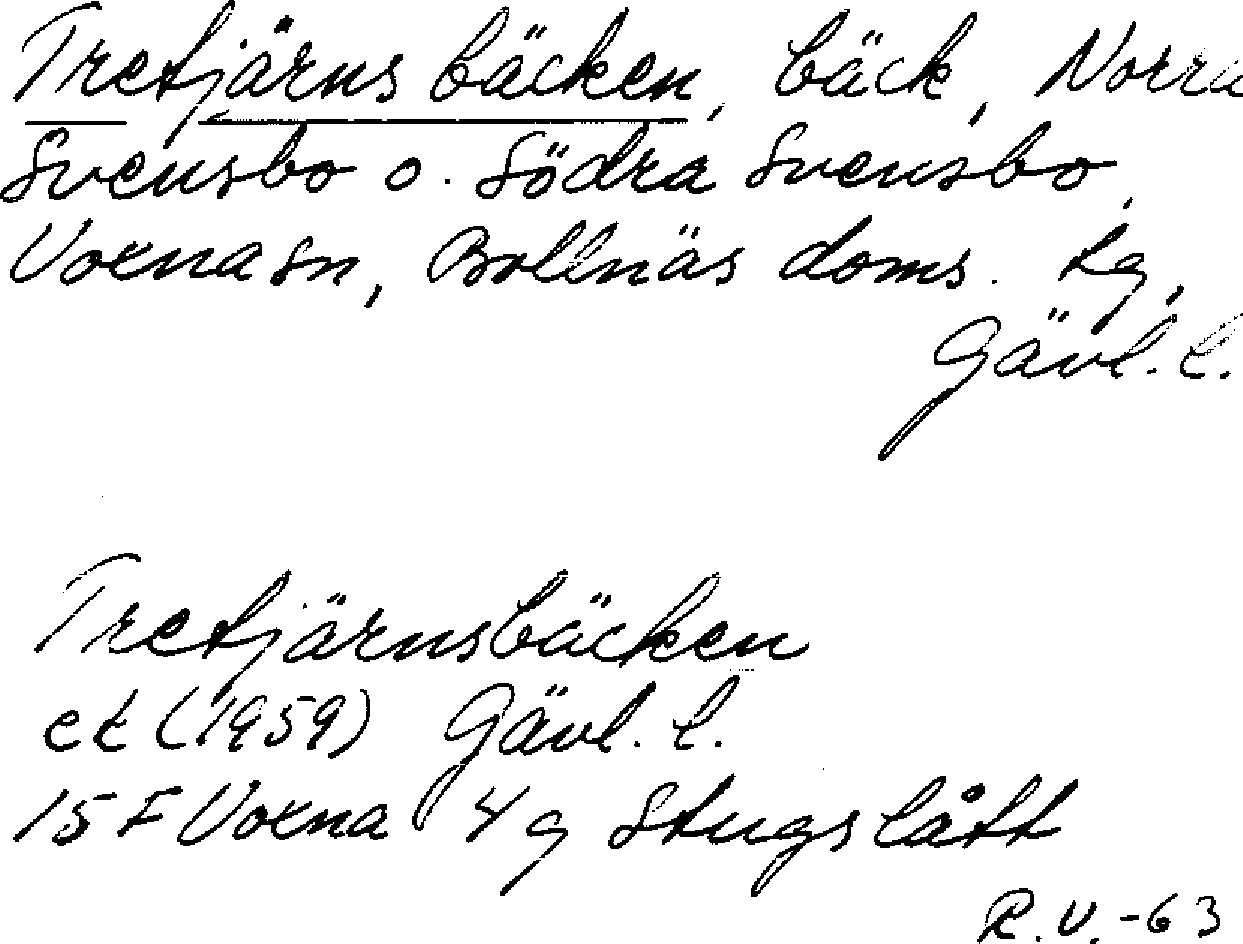 Tretjärnsbäcken, bäck, Norra
Svensbo o. Södra Svensbo,
Voxna sn, Bollnäs doms. tg,
Gävl. l.
Tretjärnsbäcken
ek (1959) Gävl. l.
15 F Voxna 4 g Stugslått
R.V.-63